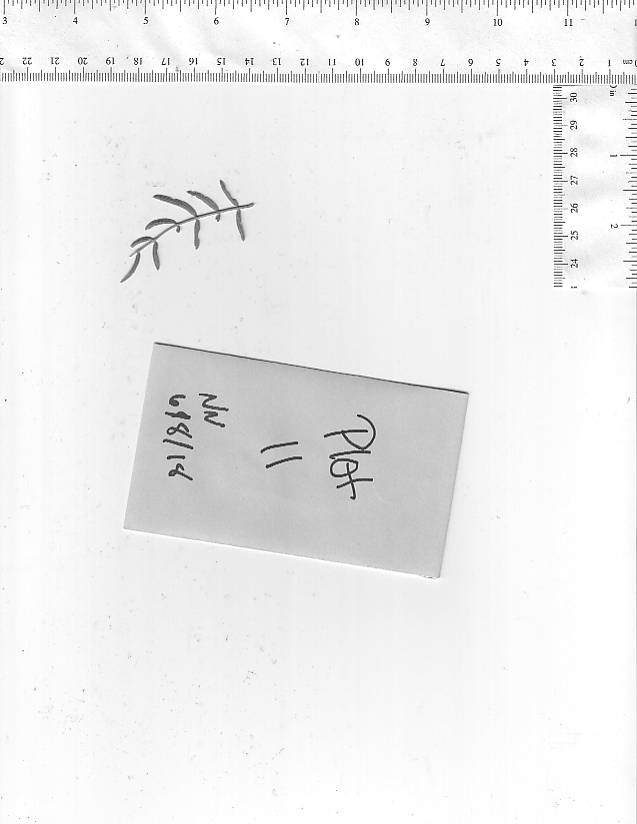 3 4 5 6 7 8 9 10 11
22 21 20 19 18 17 16 15 14 13 12 11 10 9 8 7 6 5 4 3 2 1 cm
in
1
2
30
29
28
27
26
25
24
Plot
11
NW